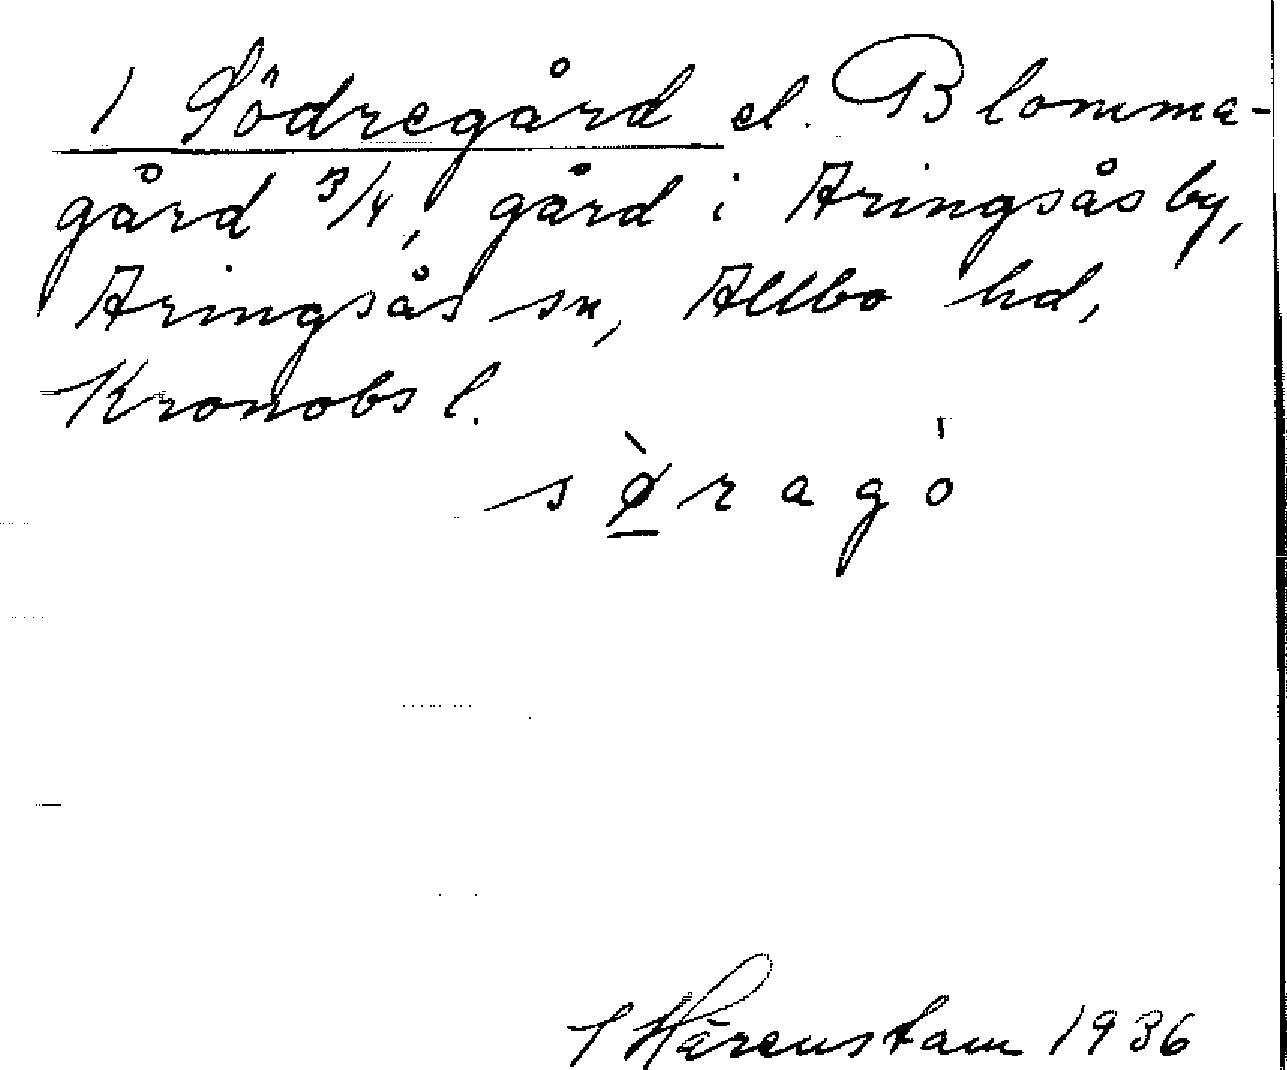 1 Södregård el. Blomma-
gård 3/4, gård i Aringsås by,
Aringsås sn, Allbo hd,
Kronobs l.
sø̀ragó
Härenstam 1936